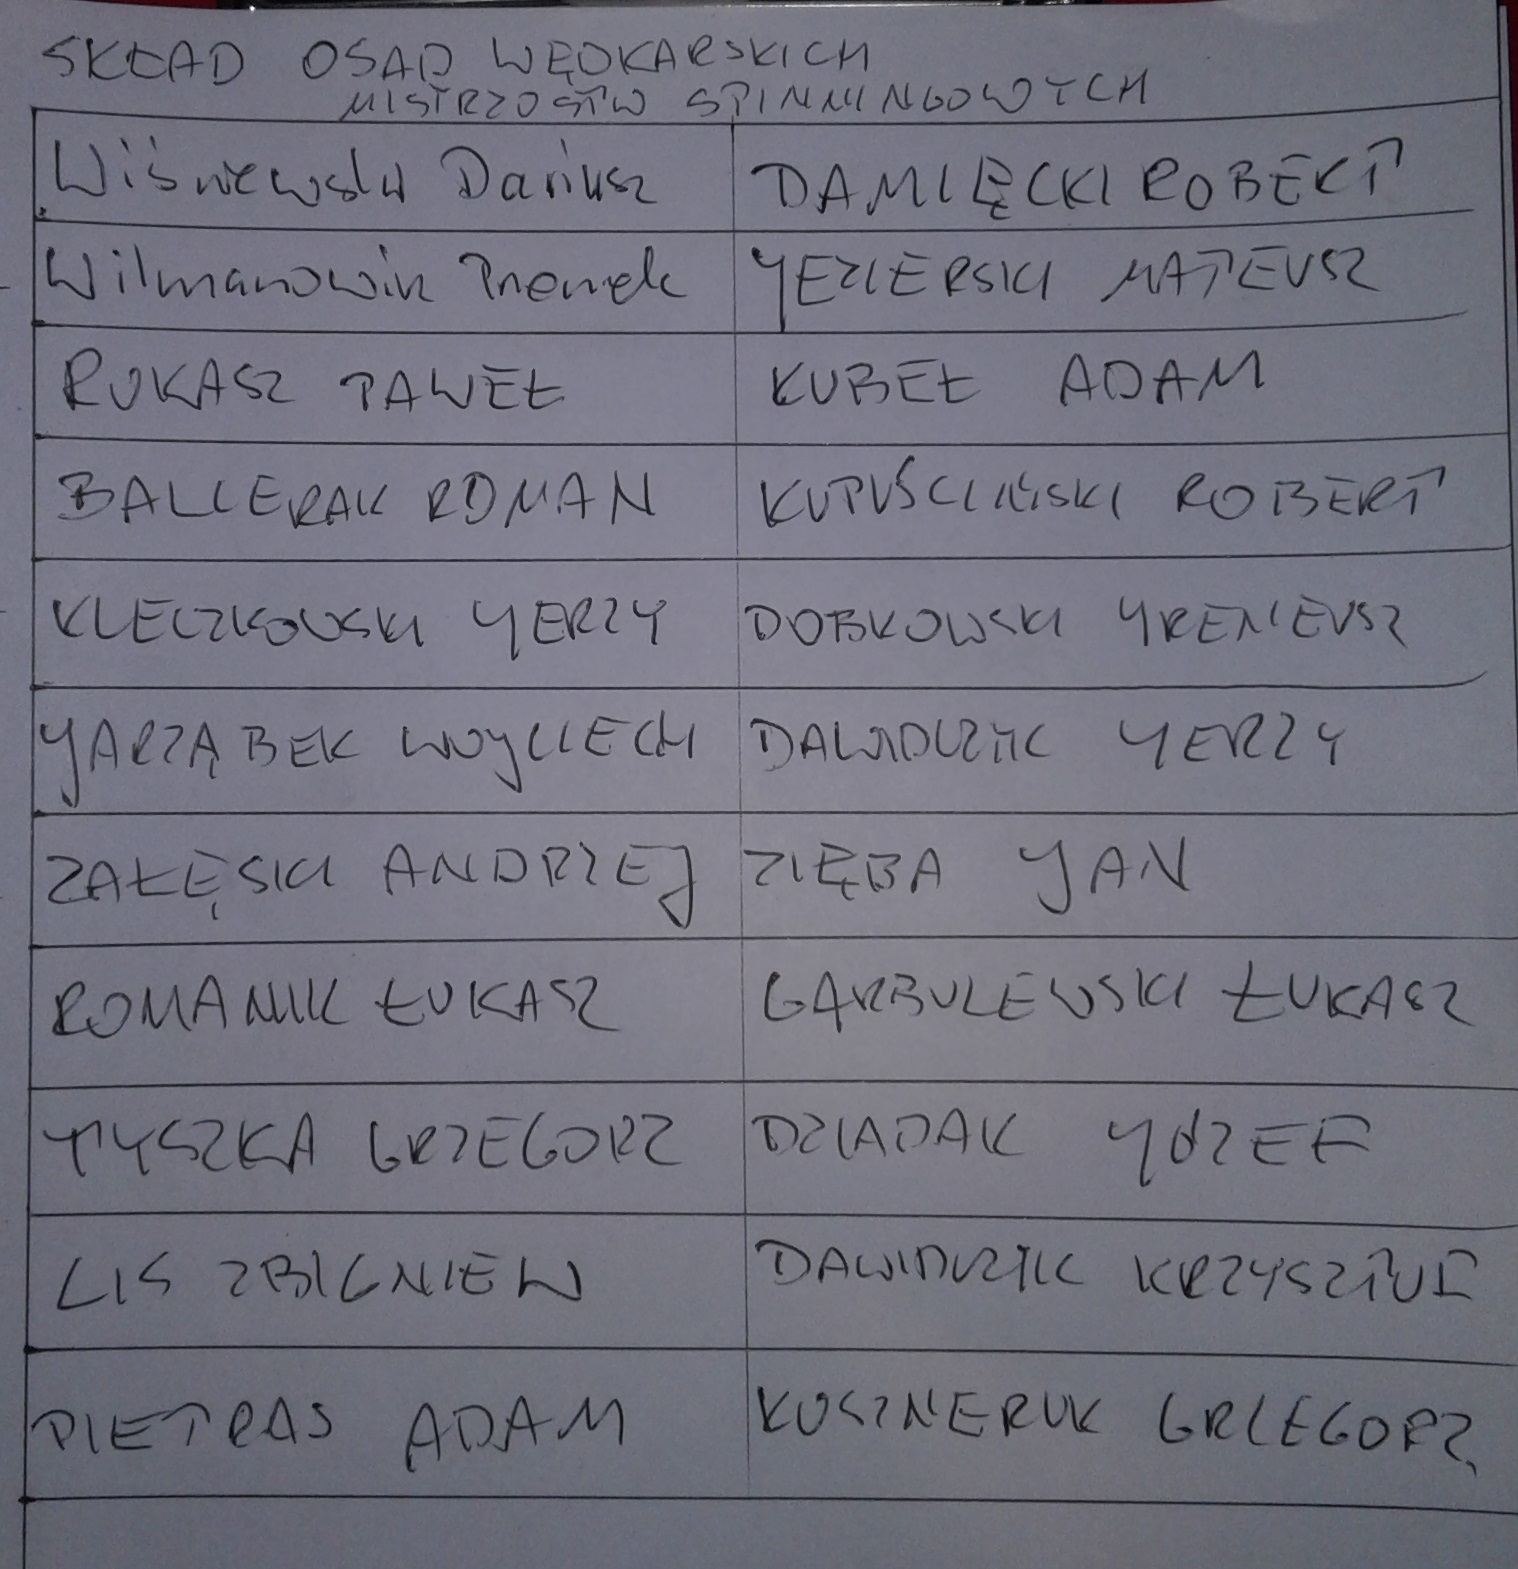 SKŁAD OSAD WĘDKARSKICH
MISTRZOSTW SPINNINGOWYCH
Wiśniewski Dariusz DAMIĘCKI ROBERT
Wilmanowicz Przemek JEZIERSKI MATEUSZ
RUKASZ PAWEŁ KUBEŁ ADAM
BALCERAK ROMAN KUPUŚCIŃSKI ROBERT
KLECZKOWSKI JERZY DOBKOWSKI IRENEUSZ
JARZĄBEK WOJCIECH DAWIDCZYK JERZY
ZAŁĘSKI ANDRZEJ ZIĘBA JAN
ROMANIK ŁUKASZ GARBULEWSKI ŁUKASZ
TYSZKA GRZEGORZ DZIADAK JÓZEF
LIS ZBIGNIEW DAWIDCZYK KRZYSZTOF
PIETRAS ADAM KUSZNERUK GRZEGORZ